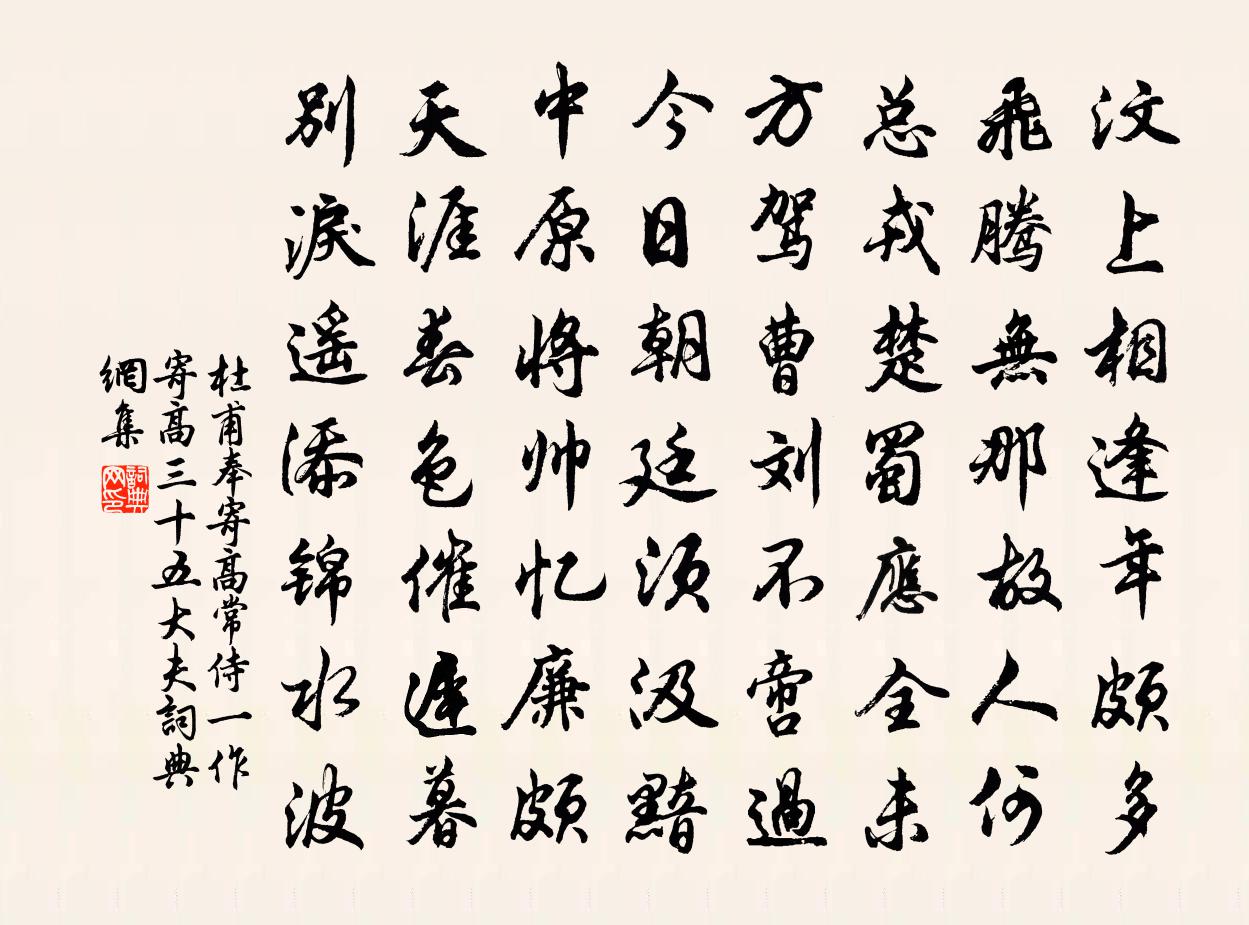 汶上相逢年颇多
飛騰無那故人何
总戎楚蜀應全未
方驾曹刘不啻過
今日朝廷须汲黯
中原将帅忆廉颇
天涯春色催遲暮
别淚遥添锦水波
杜甫奉寄高常侍一作
寄高三十五大夫詞典
網集
詞典
网印